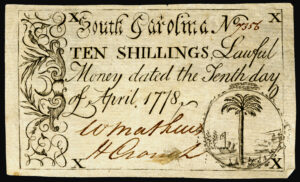 X X
South Carolina No 7356
TEN SHILLINGS, Lawful
Money dated the Tenth day
of April, 1778.
W Mathews
H Crouch
X X